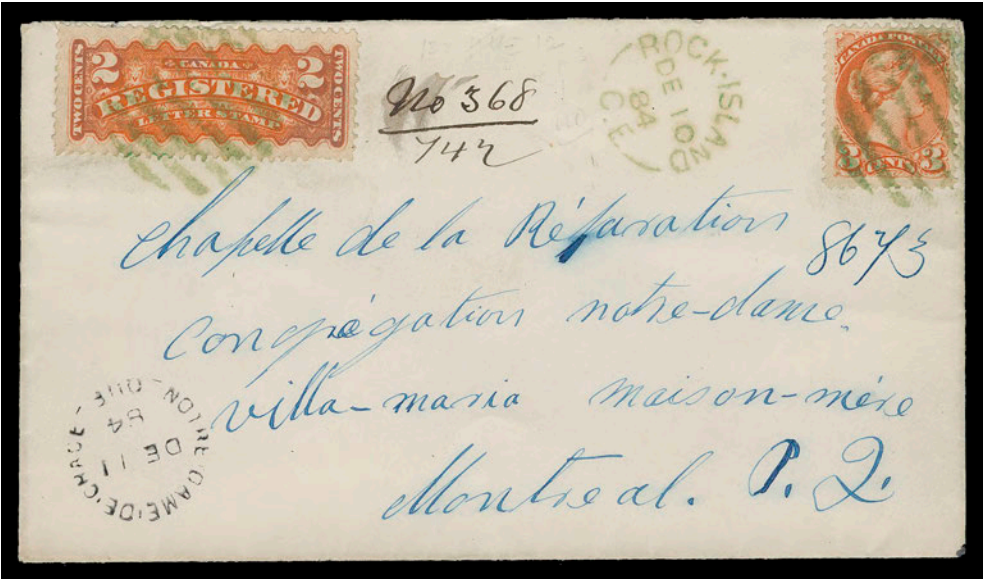 2 CANADA 2
TWO CENTS REGISTERED TWO CENTS
LETTER STAMP
No 368
742
ROCK·ISLAND
DE 10
84
C.E
CANADA POSTAGE
3 CENTS 3
Chapelle de la Réparation
8673
Congrégation notre-dame.
villa-maria maison-mère
Montreal. P. Q.
NOTRE·DAME·DE·GRACE - QUE -
DE 11
84